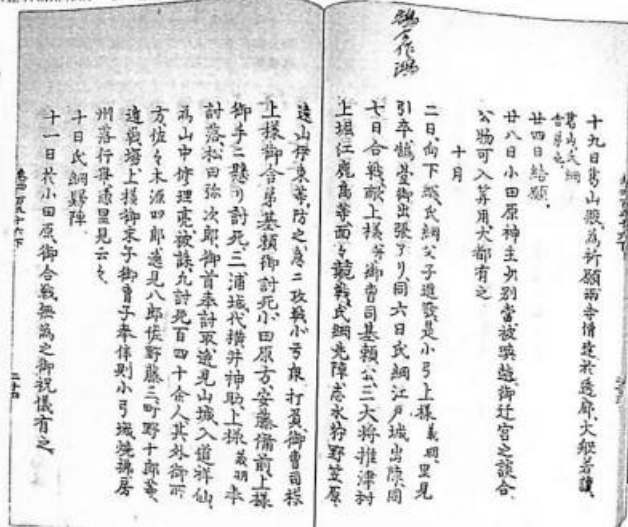 鵠今作鴻
十九日葛山殿為祈願両寺惰達於透廊大般若讀
葛山氏綱
舎弟也
廿四日結願
廿八日小田原神主出別當被喚越御迁宮之談合
公物可入算用大都有之
十月
二日向下総氏綱父子進發是小弓上様義明里見
引卒鵠臺御出張了り同六日氏綱江戸城出陳同
七日合戦敵上様并御曹司基頼公三大将椎津村
上堀江鹿嶌等面々競戦氏綱先陣志水狩野笠原
遠山伊東等防之急ニ攻戦小弓衆打負御曹司様
上様御合弟基頼御討死小田原方安藤備前上様
御手ニ懸り討死三浦城代横井神助上様義明奉
討落松田弥次郎御首奉討取逸見山城入道祥仙
為山中修理亮被誅九討死百四十余人其外御所
方佐々木源四郎逸見八郎佐野藤三町野十郎等
遁戦塲上様御末子御曹子奉倶則小弓城焼拂房
州落行憑里見云々
十日氏綱皈陣
十一日於小田原御合戦無為之御祝儀有之